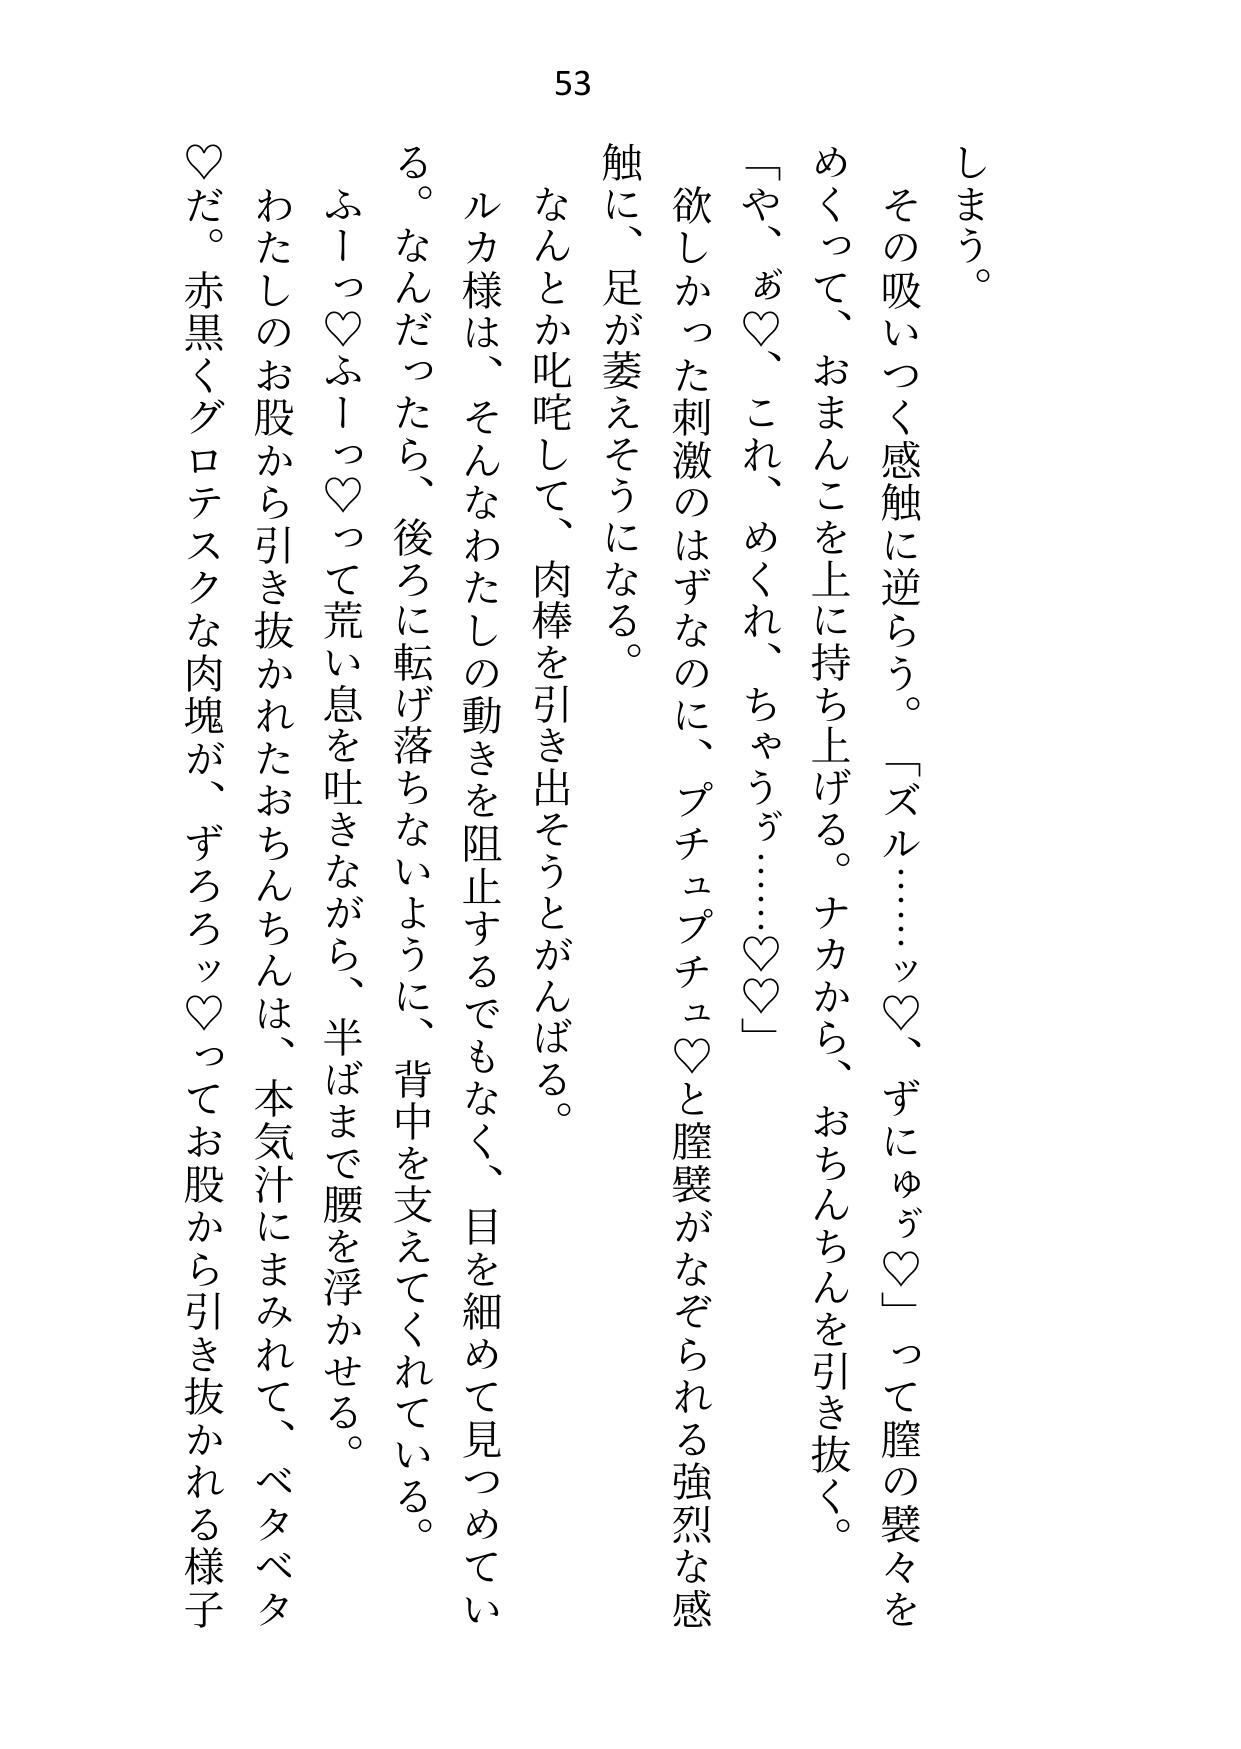 53
しまう。
　その吸いつく感触に逆らう。「ズル……ッ♡、ずにゅゔ♡」って膣の襞々を
めくって、おまんこを上に持ち上げる。ナカから、おちんちんを引き抜く。
「や、ぁ゙♡、これ、めくれ、ちゃうゔ……♡♡」
　欲しかった刺激のはずなのに、プチュプチュ♡と膣襞がなぞられる強烈な感
触に、足が萎えそうになる。
　なんとか叱咤して、肉棒を引き出そうとがんばる。
　ルカ様は、そんなわたしの動きを阻止するでもなく、目を細めて見つめてい
る。なんだったら、後ろに転げ落ちないように、背中を支えてくれている。
　ふーっ♡ふーっ♡って荒い息を吐きながら、半ばまで腰を浮かせる。
　わたしのお股から引き抜かれたおちんちんは、本気汁にまみれて、ベタベタ
♡だ。赤黒くグロテスクな肉塊が、ずろろッ♡ってお股から引き抜かれる様子